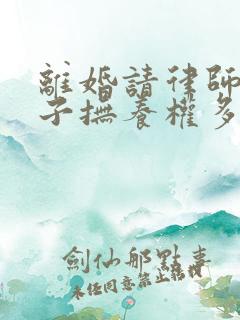 離婚請律師
子撫養權多
劍仙那點事
未經同意禁止轉載